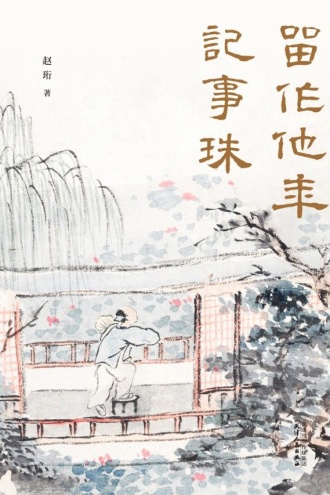 留作他年
記事珠
赵珩 著